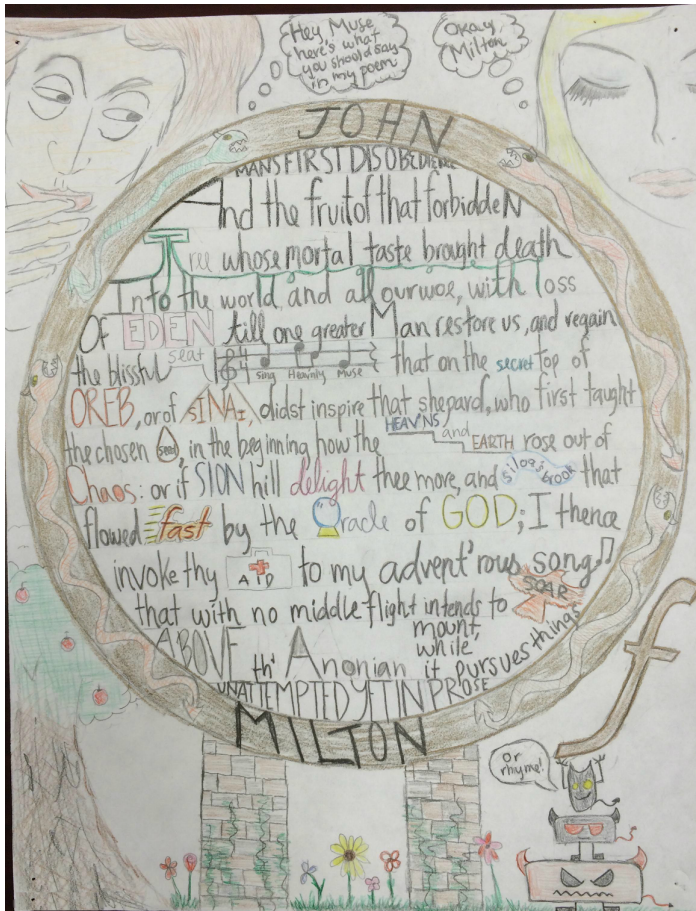 Hey, Muse
here's what
you should say
in my poem
Okay,
Milton
JOHN
MANS FIRST DISOBEDIENCE
And the fruit of that forbiddeN
Tree whose mortal taste brought death
Into the world, and all our woe, with loss
Of EDEN till one greater Man restore us, and regain
the blissful seat Sing Heavnly Muse that on the secret top of
OREB, or of SINAI, didst inspire that shepard, who first taught
the chosen seed, in the beginning how the HEAV'NS and EARTH rose out of
Chaos: or if SION hill delight thee more, and Siloa's brook that
flowed fast by the Oracle of GOD; I thence
invoke thy AID to my advent'rous song
that with no middle flight intends to SOAR
ABOVE th' Anonian mount, while it pursues things
UNATTEMPTED YET IN PROSE
MILTON
or
rhyme!
f